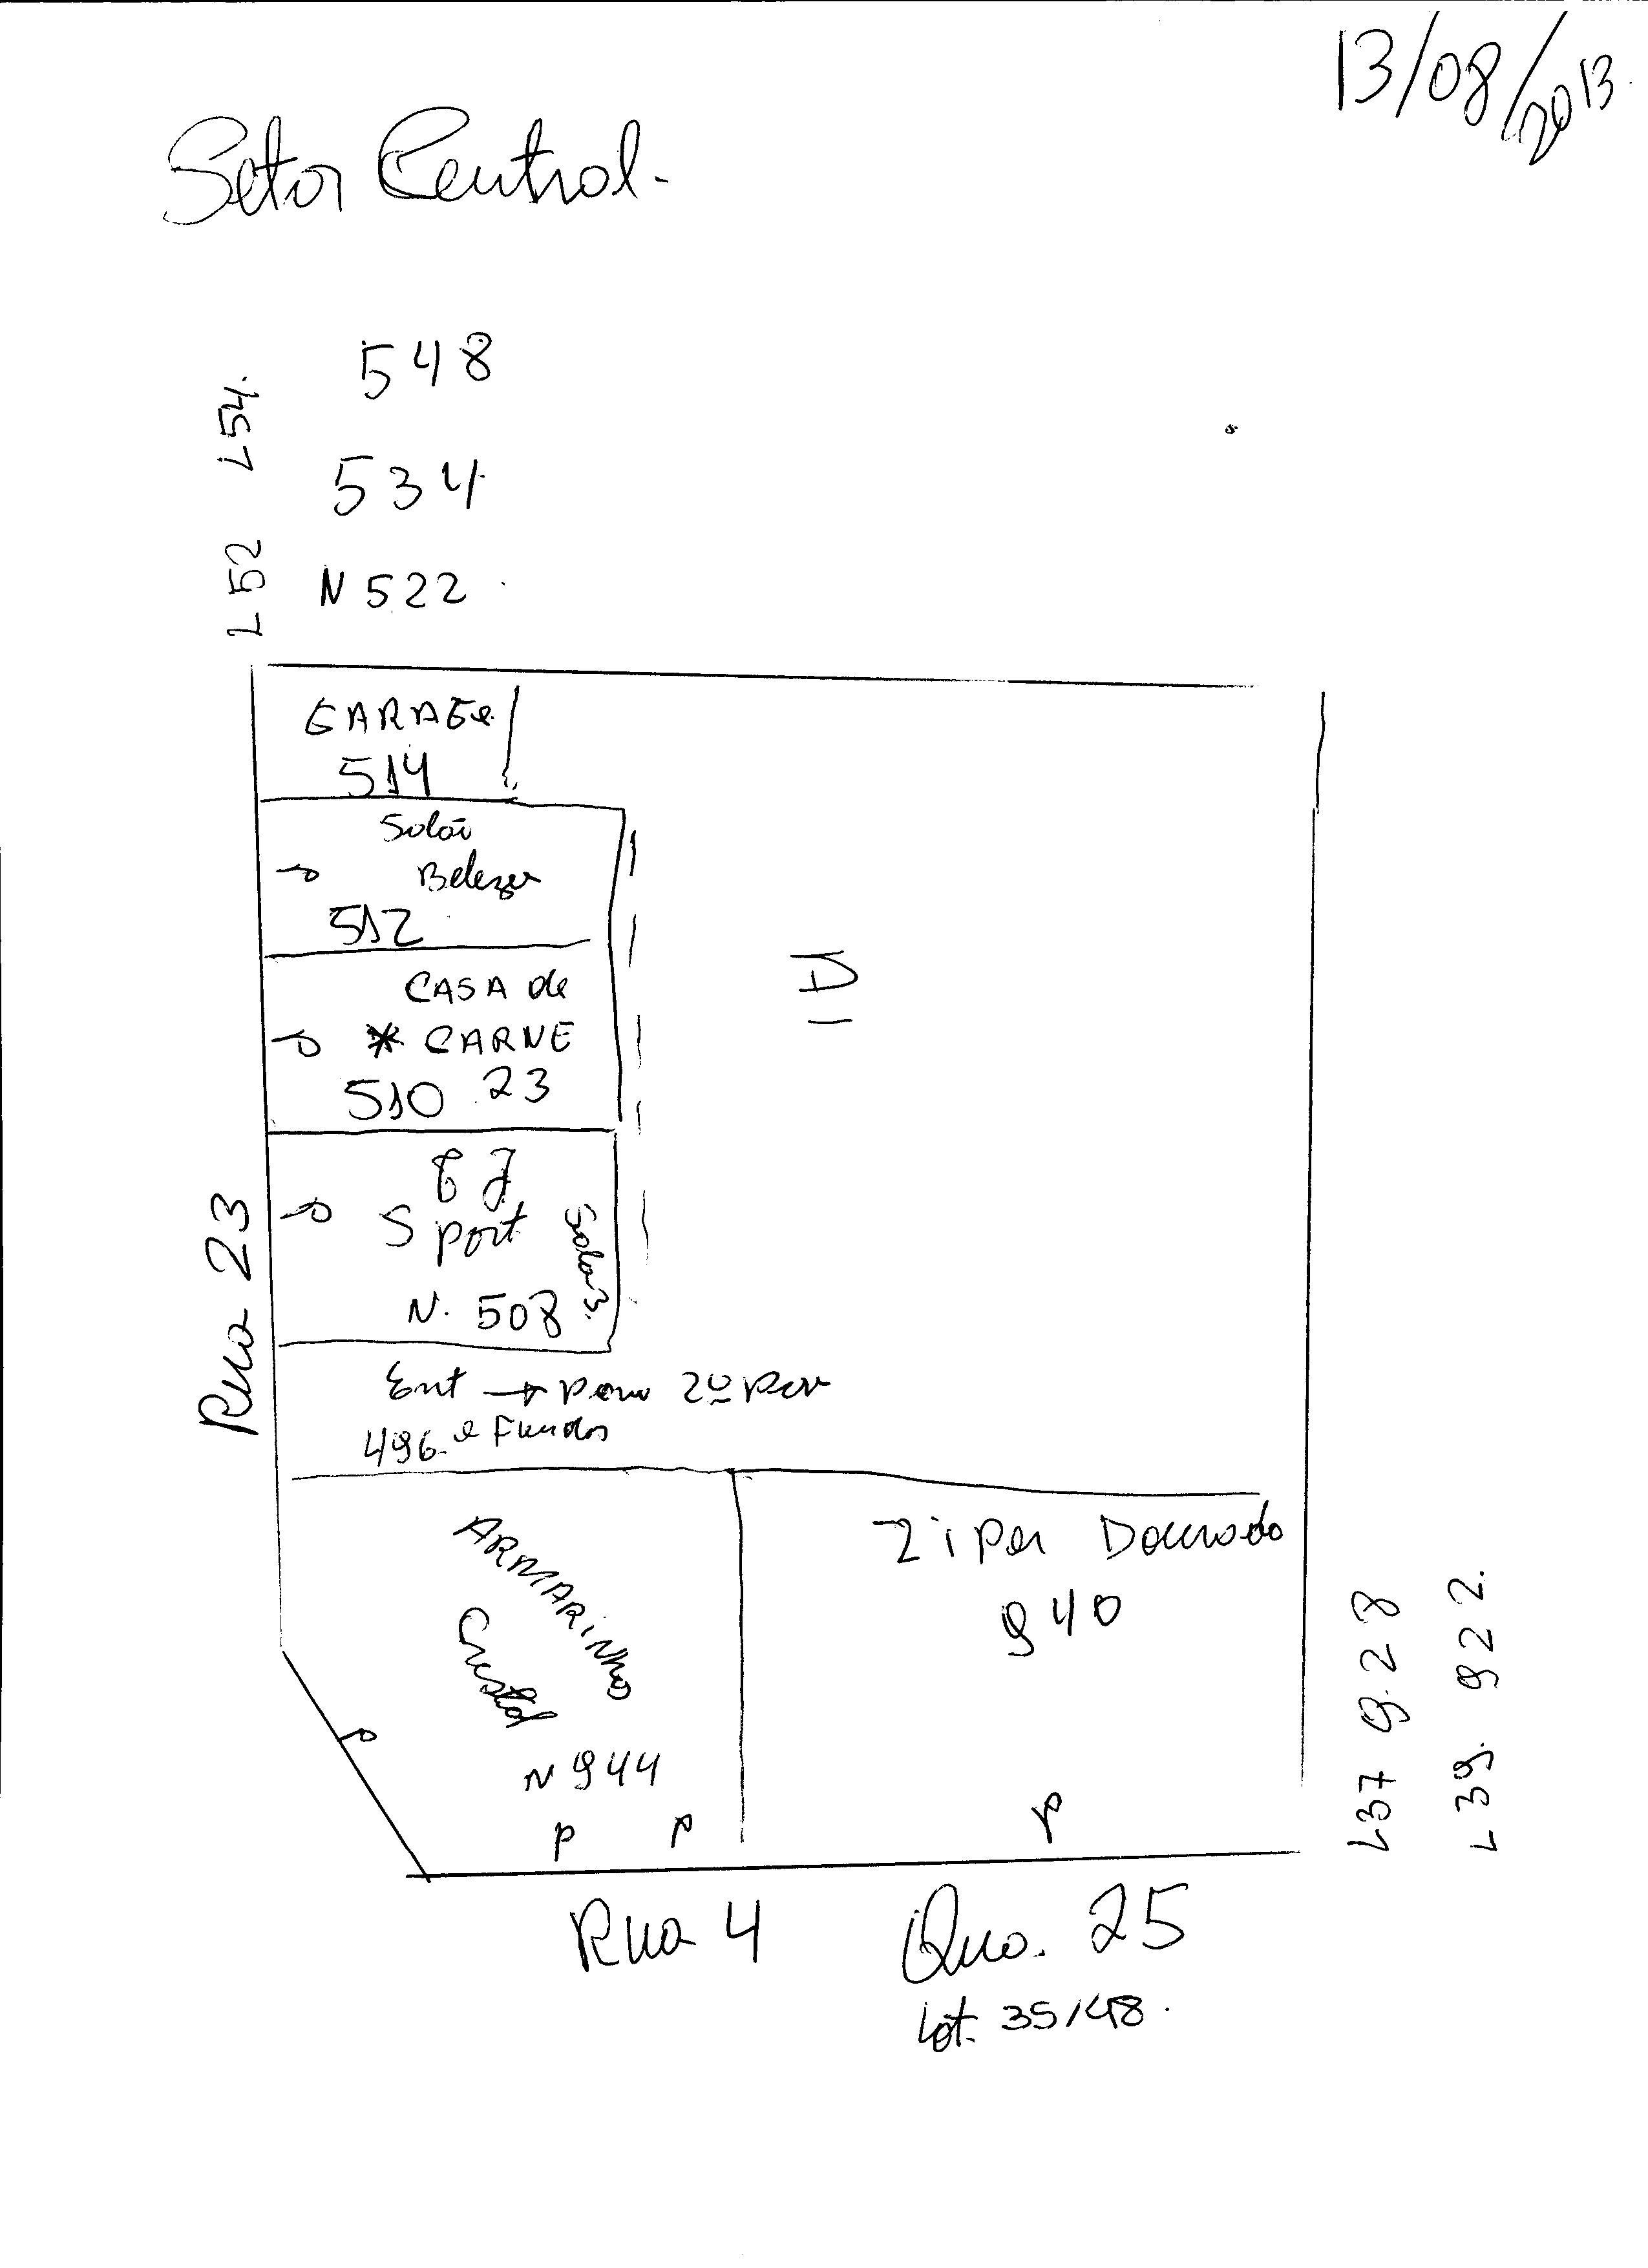 13/08/2013
Setor Central.
548
L54.
534
L52
N 522
GARAGe
514
Salão
Beleza
512
CASA de
* CARNE
510 23
D
Sport
N. 508
Sala 3.
Rua 23
Ent → para 2º Pav
496. e Fundos
ARMARiNhos
Cristal
N 944
P
P
P
ZiPer Dourado
940
P
L37 928
L 39. 922.
Rua 4 Qua. 25
Lot. 35/48.